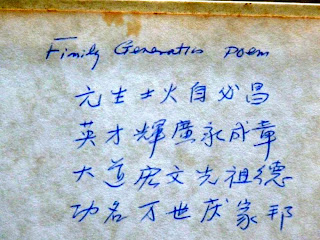 Family Generation Poem
元生士火自必昌
英才輝廣永成章
大道宏文光祖德
功名万世庆家邦